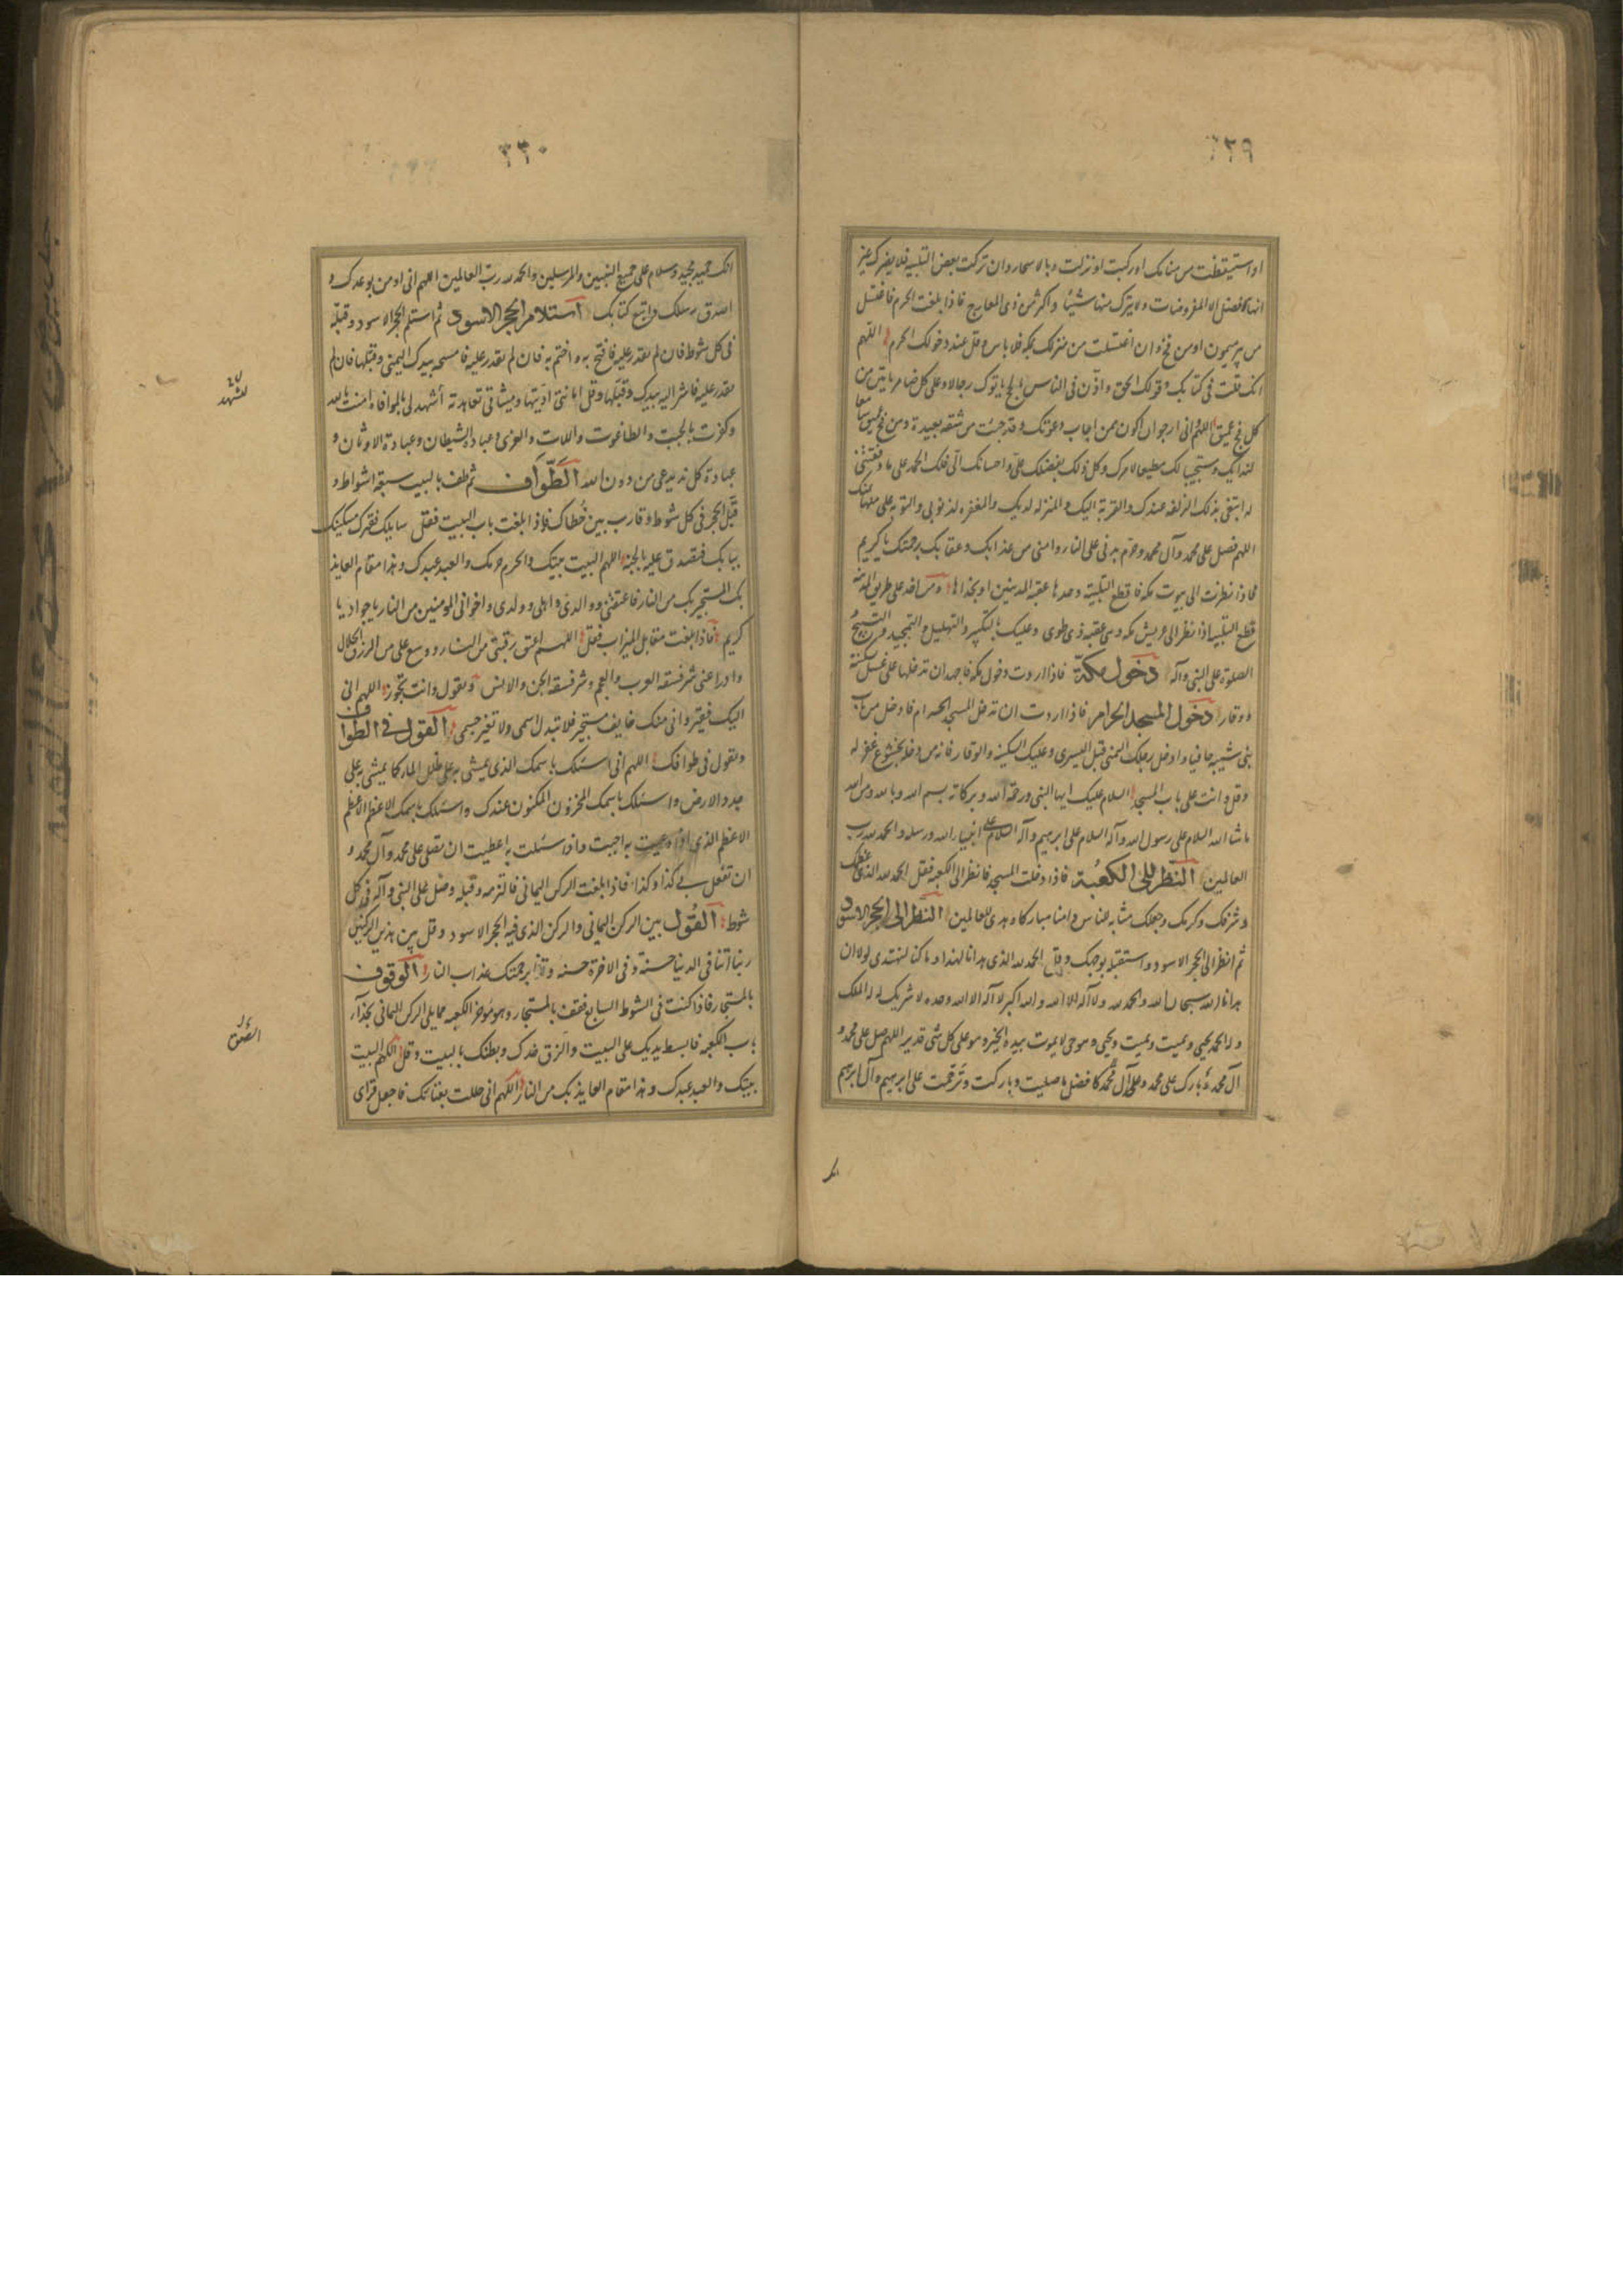 ٣٢٩
او استيقظت من منامك او ركبت او نزلت وبالاسحار وان تركت بعض التلبيه فلا يضرك غير
انها افضل الا المفروضات ولا يترك منها شيئا واكثر من ذى المعارج فاذا بلغت الحرم فاغتسل
من بير ميمون او من فخ وان اغتسلت من منزلك بمكه فلا باس وقل عند دخولك الحرم اللهم
انك قلت فى كتابك وقولك الحق واذن فى الناس بالحج ياتوك رجالا وعلى كل ضامر ياتين من
كل فج عميق اللهم انى ارجو ان اكون ممن اجاب دعوتك وقد جئت من شقه بعيدة ومن فج عميق سامعا
لندائك ومستجيبا لك مطيعا لامرك وكل ذلك بفضلك على واحسانك الى فلك الحمد على ما وفقتنى
له ابتغى بذلك الزلفه عندك والقربة اليك والمنزله لديك والمغفره لذنوبى والتوبه على منها بمنك
اللهم فصل على محمد وآل محمد وحرم بدنى على النار وامنى من عذابك وعقابك برحمتك يا كريم
فاذا نظرت الى بيوت مكه فاقطع التلبية وحدها عقبه المدنيين او بحذاها ومن اخذ على طريق المدينه
قطع التلبيه اذا نظر الى عريش مكه وهى عقبه ذى طوى وعليك بالتكبير والتهليل والتمجيد والتسبيح
الصلوة على النبى وآله دخول مكة فاذا اردت دخول مكه فاجهد ان تدخلها على غسل سكينة
ووقار دخول المسجد الحرام فاذا اردت ان تدخل المسجد الحرام فادخل من باب
بنى شيبه حافيا وادخل رجلك اليمنى قبل اليسرى وعليك السكينه والوقار فانه من دخله بخشوع غفر له
وقل وانت على باب المسجد السلام عليك ايها النبى ورحمة الله وبركاته بسم الله وبالله ومن الله
ما شا الله السلام على رسول الله وآله السلام على ابرهيم وآله السلام على انبياء الله ورسله والحمد لله رب
العالمين النظر الى الكعبة فاذا دخلت المسجد فانظر الى الكعبه فقل الحمد لله الذى عظمك
وشرفك وكرمك وجعلك مثابه للناس وامنا مباركا وهدى للعالمين النظر الى الحجر الاسود
ثم انظر الى الحجر الاسود واستقبله بوجهك وقل الحمد لله الذى هدانا لهذا وما كنا لنهتدى لولا ان
هدانا الله سبحان الله والحمد لله ولا اله الا الله والله اكبر لا اله الا الله وحده لا شريك له له الملك
وله الحمد يحيى ويميت ويميت ويحيى وهو حى لا يموت بيده الخير وهو على كل شى قدير اللهم صل على محمد و
آل محمد وبارك على محمد وعلى آل محمد كافضل ما صليت وباركت وترحمت على ابرهيم وآل ابرهيم
٣٣٠
انك حميد مجيد وسلام على جميع النبيين والمرسلين والحمد لله رب العالمين اللهم انى اومن بوعدك و
اصدق رسلك واتبع كتابك استلام الحجر الاسود ثم استلم الحجر الاسود وقبله
فى كل شوط فان لم تقدر عليه فافتح به واختم به فان لم تقدر عليه فامسحه بيدك اليمنى وقبلها فان لم
تقدر عليه فاشر اليه بيدك وقبلها وقل امانتى اديتها وميثاقى تعاهدته لتشهد لى بالموافاه امنت بالله
وكفرت بالجبت والطاغوت واللات والعزى وعبادة الشيطان وعبادة الاوثان و
عبادة كل ند يدعى من دون الله الطواف ثم طف بالبيت سبعه اشواط و
قبل الحجر فى كل شوط وقارب بين خطاك فاذا بلغت باب البيت فقل سايلك فقيرك مسكينك
ببابك فتصدق عليه بالجنه اللهم البيت بيتك والحرم حرمك والعبد عبدك وهذا مقام العايذ
بك المستجير بك من النار فاعتقنى ووالدى واهلى وولدى واخوانى المومنين من النار يا جواد يا
كريم فاذا بلغت مقابل الميزاب فقل اللهم اعتق رقبتى من النار ووسع على من الرزق الحلال
وادرا عنى شر فسقه العرب والعجم وشر فسقه الجن والانس وتقول وانت تجوز اللهم انى
اليك فقير وانى منك خايف مستجير فلا تبدل اسمى ولا تغير جسمى القول فى الطواف
وتقول فى طوافك اللهم انى اسئلك باسمك الذى يمشى به على طلل الماء كما يمشى به على
جدد الارض واسئلك باسمك المخزون المكنون عندك واسئلك باسمك الاعظم الاعظم
الاعظم الذى اذا دعيت به اجبت واذا سئلت به اعطيت ان تصلى على محمد وآل محمد و
ان تفعل بى كذا وكذا فاذا بلغت الركن اليمانى فالتزمه وقبله وصل على النبى وآله فى كل
شوط القول بين الركن اليمانى والركن الذى فيه الحجر الاسود وقل بين هذين الركنين
ربنا آتنا فى الدنيا حسنة وفى الاخرة حسنه وقنا برحمتك عذاب النار الوقوف
بالمستجار فاذا كنت فى الشوط السابع فقف بالمستجار وهو موخر الكعبه مما يلى الركن اليمانى بحذاء
باب الكعبه فابسط يديك على البيت والزق خدك وبطنك بالبيت وقل اللهم البيت
بيتك والعبد عبدك وهذا مقام العايذ بك من النار اللهم انى حللت بفنائك فاجعل قراى
لتشهد
الصق